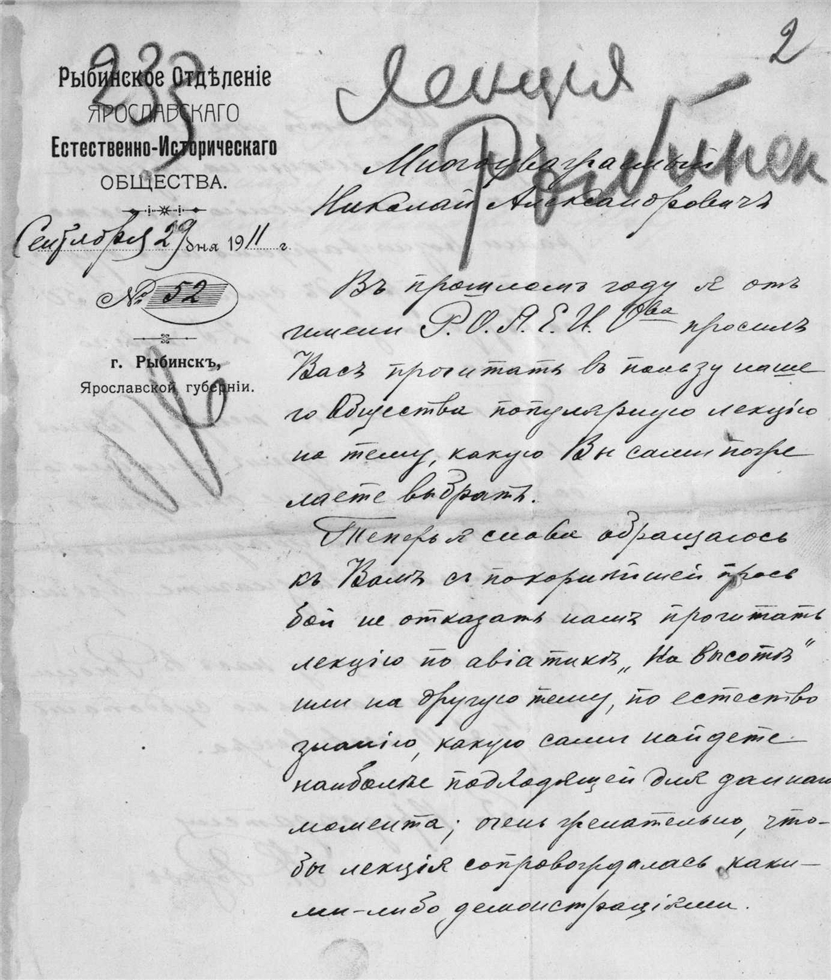 2
233
Лекція
Рыбинск
Рыбинское Отдѣленіе
ЯРОСЛАВСКАГО
Естественно-Историческаго
ОБЩЕСТВА.
Сентября 29 дня 1911 г.
№ 52
г. Рыбинскъ,
Ярославской губерніи.
Многоуважаемый
Николай Александровичъ
Въ прошломъ году я отъ
имени Р.О.Я.Е.И. О-ва просилъ
Васъ прочитать въ пользу наше
го Общества популярную лекцію
на тему, какую Вы сами поже
лаете выбрать.
Теперь я снова обращаюсь
къ Вамъ съ покорнѣйшей прось
бой не отказать намъ прочитать
лекцію по авіатикѣ „На высотѣ"
или на другую тему, по естество
знанію, какую сами найдете
наиболѣе подходящей для даннаго
момента; очень желательно, что-
бы лекція сопровождалась каки-
ми-либо демонстраціями.